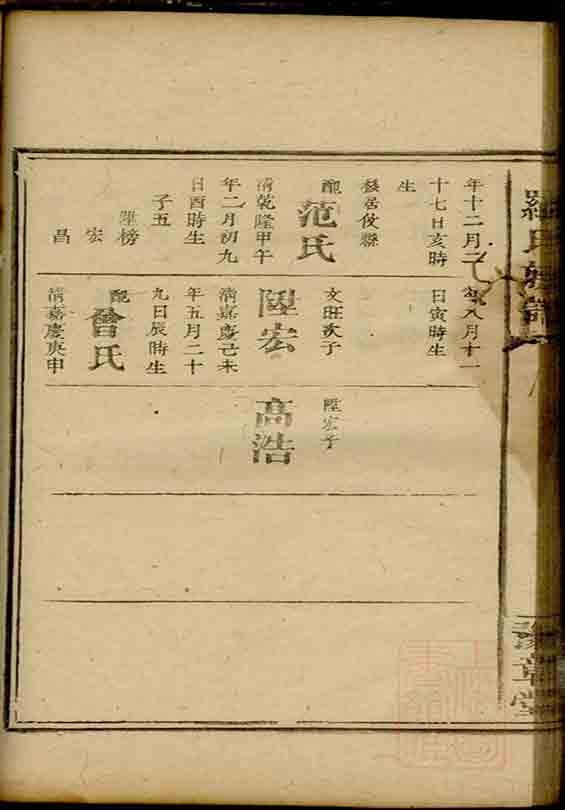 羅氏
豫章堂
年十二月二
十七日亥時
生
移居攸縣
配
范氏
清乾隆甲午
年二月初九
日酉時生
子五
陞榜
宏
昌
年八月十一
日寅時生
文旺次子
陞宏
清嘉慶己未
年五月二十
九日辰時生
配
曾氏
清嘉慶庚申
陞宏子
高浩